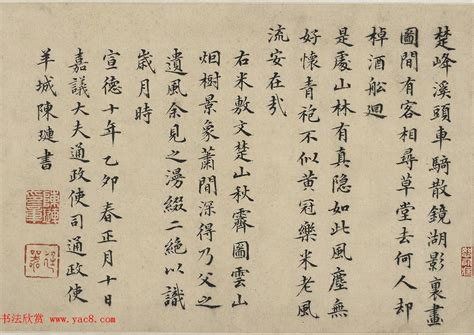 楚峰溪頭車騎散鏡湖影裏畫
圖間有客相尋草堂去何人却
棹酒舩迴
是處山林有真隐如此風塵無
好懷青袍不似黃冠樂米老風
流安在㢤
右米敷文楚山秋霽圖雲山
烟樹景象蕭閒深得乃父之
遺風余見之漫綴二絶以識
歲月時
宣德十年乙卯春正月十日
嘉議大夫通政使司通政使
羊城陳璉書
书法欣赏 www.yac8.com